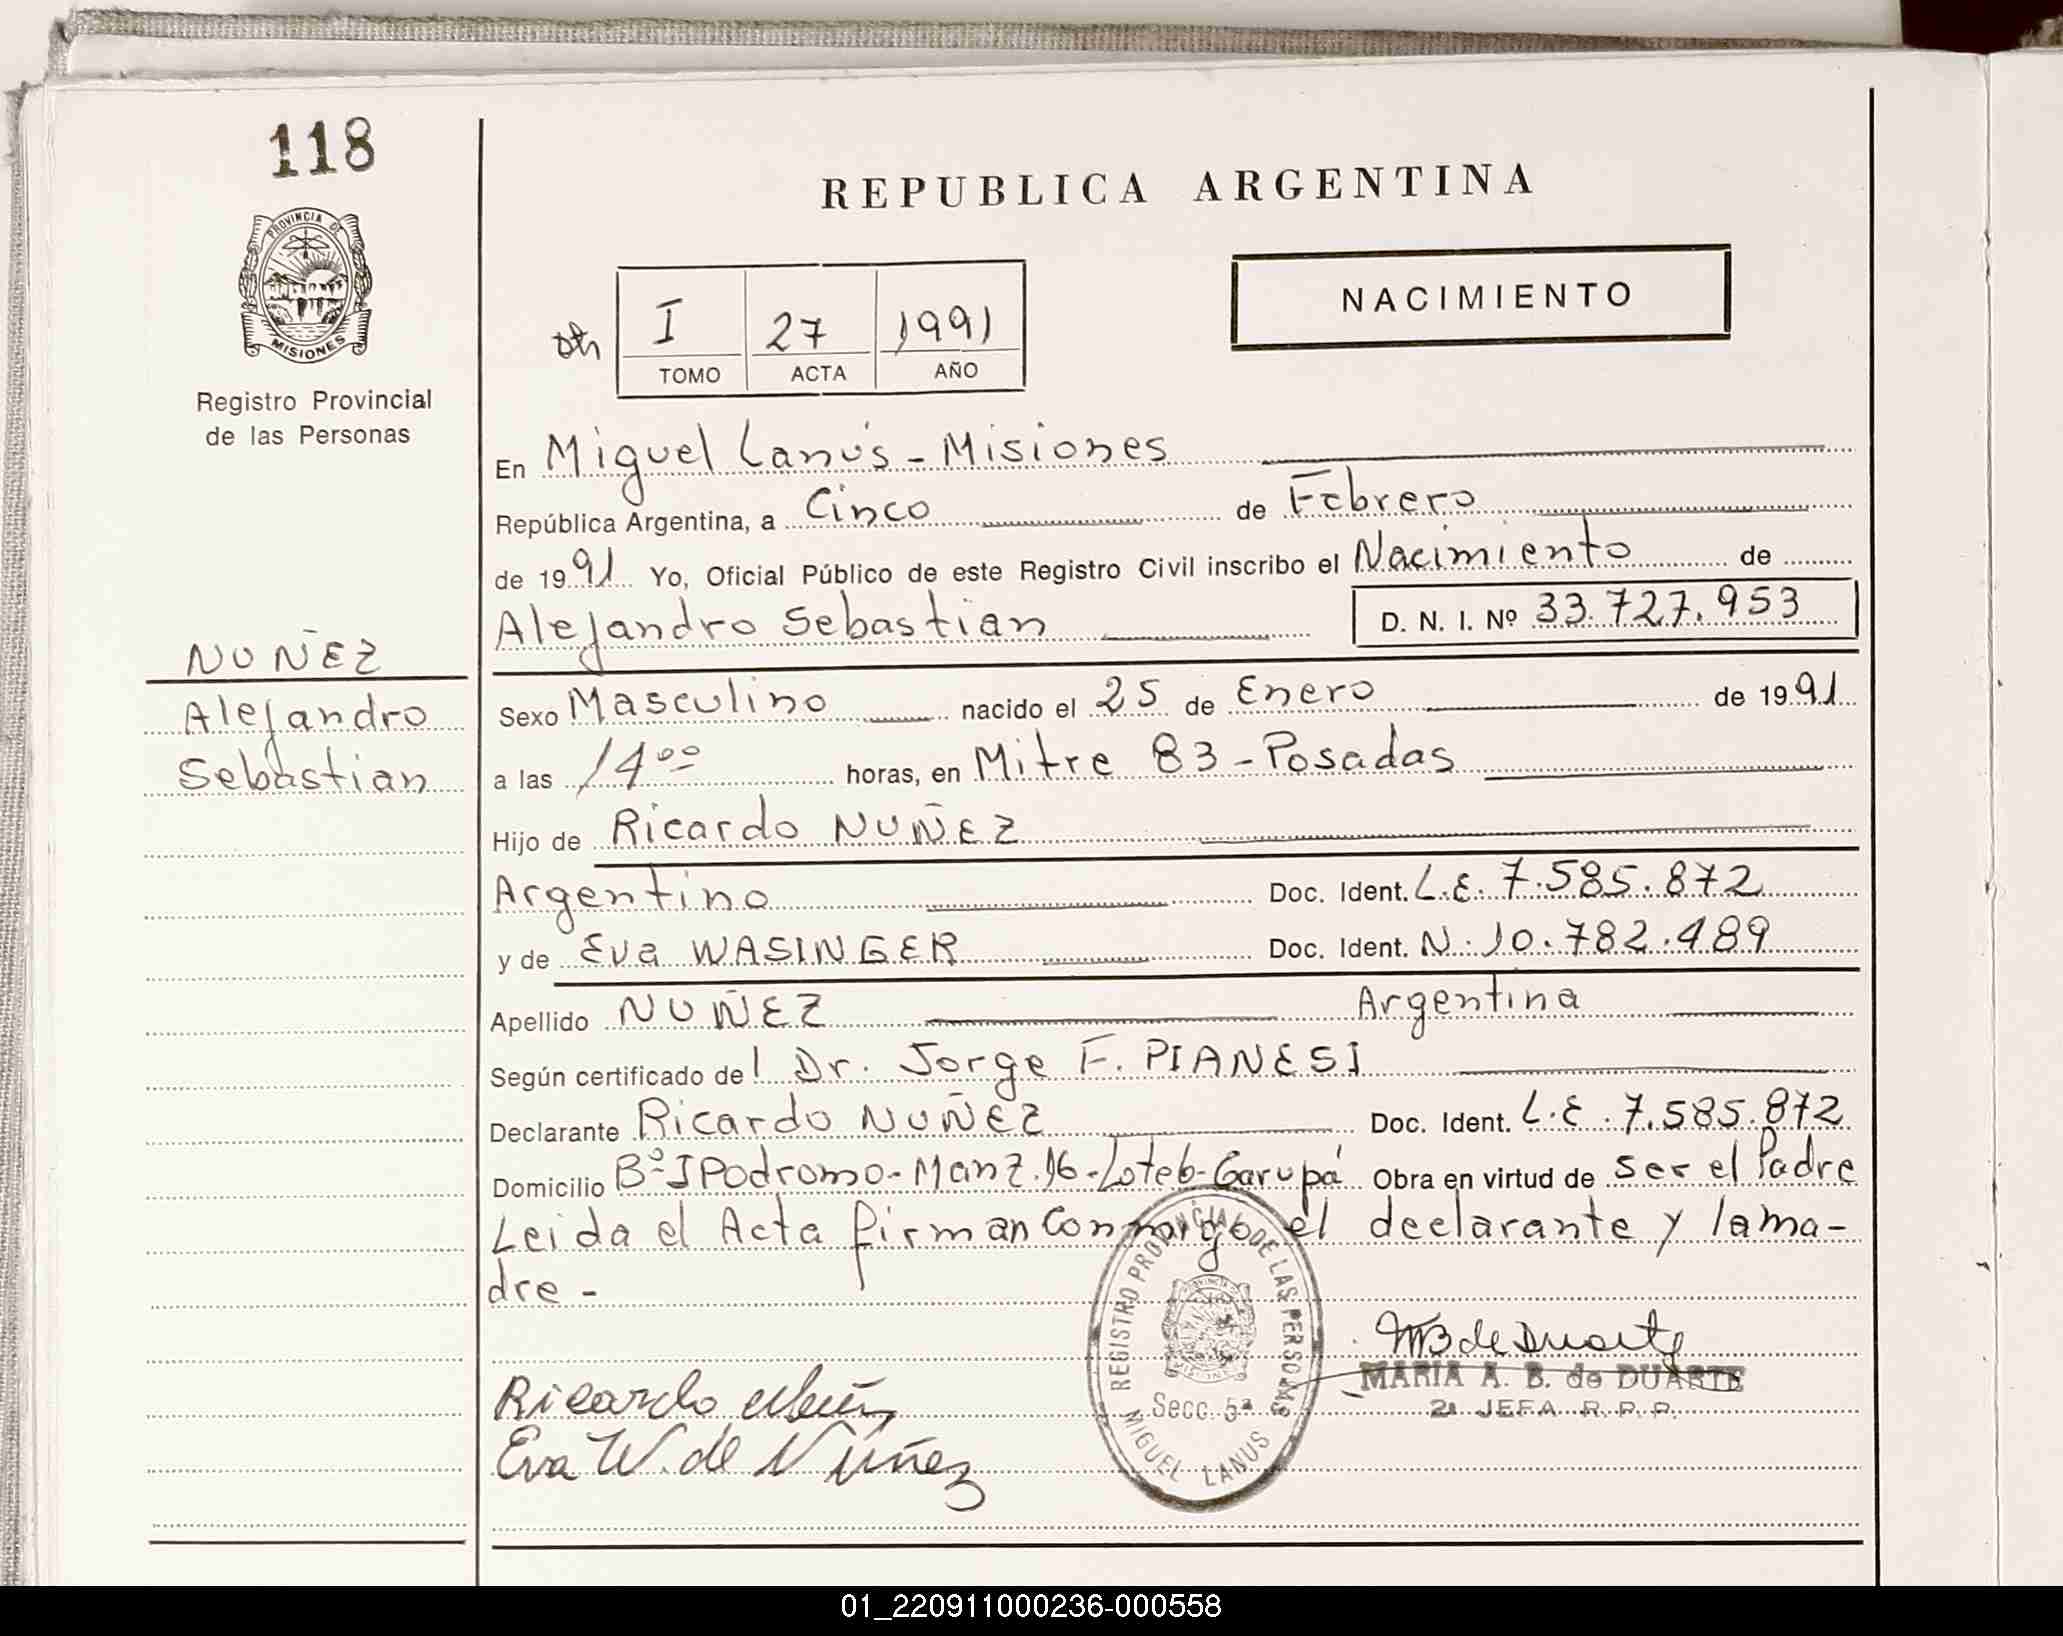 118
PROVINCIA DE
MISIONES
Registro Provincial
de las Personas
NUÑEZ
Alejandro
Sebastian
REPUBLICA ARGENTINA
NACIMIENTO
I 27 1991
TOMO ACTA AÑO
En Miguel Lanús - Misiones
República Argentina, a Cinco de Febrero
de 1991 Yo, Oficial Público de este Registro Civil inscribo el Nacimiento de
Alejandro Sebastian D. N. I. Nº 33.727.953
Sexo Masculino nacido el 25 de Enero de 1991
a las 14 00 horas, en Mitre 83 - Posadas
Hijo de Ricardo NUÑEZ
Argentino Doc. Ident. L.E. 7.585.872
y de Eva WASINGER Doc. Ident. N. 10.782.489
Apellido NUÑEZ Argentina
Según certificado del Dr. Jorge F. PIANESI
Declarante Ricardo NUÑEZ Doc. Ident. L.E. 7.585.872
Domicilio Bº IPodromo - Manz. 16 - Lote 6 - Garupá Obra en virtud de ser el Padre
Leida el Acta firman conmigo el declarante y la ma-
dre -
REGISTRO PROVINCIAL DE LAS PERSONAS
Secc. 5ª
MIGUEL LANUS
MB de Duarte
MARIA A. B. de DUARTE
2ª JEFA R. P. P.
Ricardo
Eva W. de Núñez
01_220911000236-000558